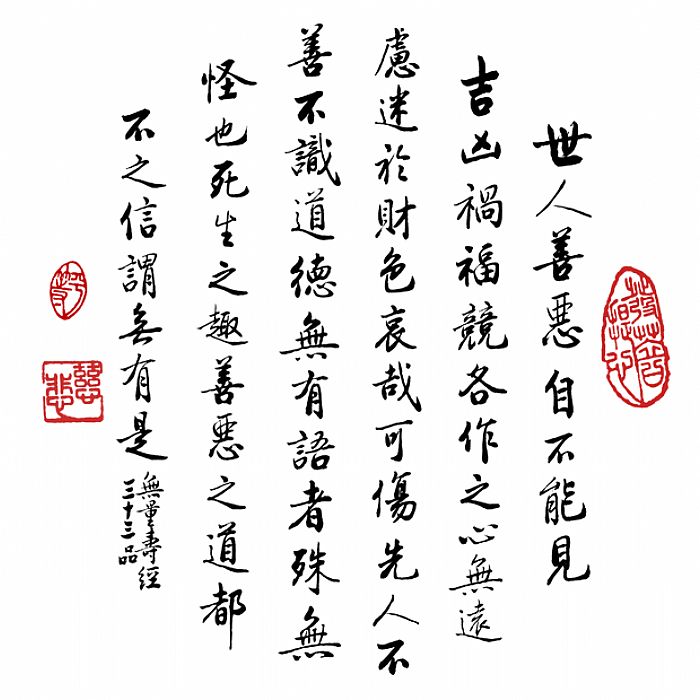 發菩提心
世人善惡自不能見
吉凶禍福競各作之心無遠
慮迷於財色哀哉可傷先人不
善不識道德無有語者殊無
怪也死生之趣善惡之道都
不之信謂無有是
無量壽經
三十三品
慈悲